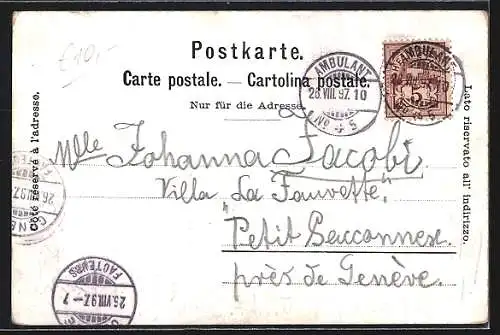 £10,-
Postkarte.
Carte postale. — Cartolina postale.
Nur für die Adresse.
Côté réservé à l'adresse.
Lato riservato all' indirizzo.
AMBULANT
26.VIII.97.10
AMBULANT
5
Mlle Johanna Jacobi
Villa La Fauvette"
"Petit Sacconnex
près de Genève.
FACTEURS
26.VIII.97.-7
FACTEURS
26.VIII.97.